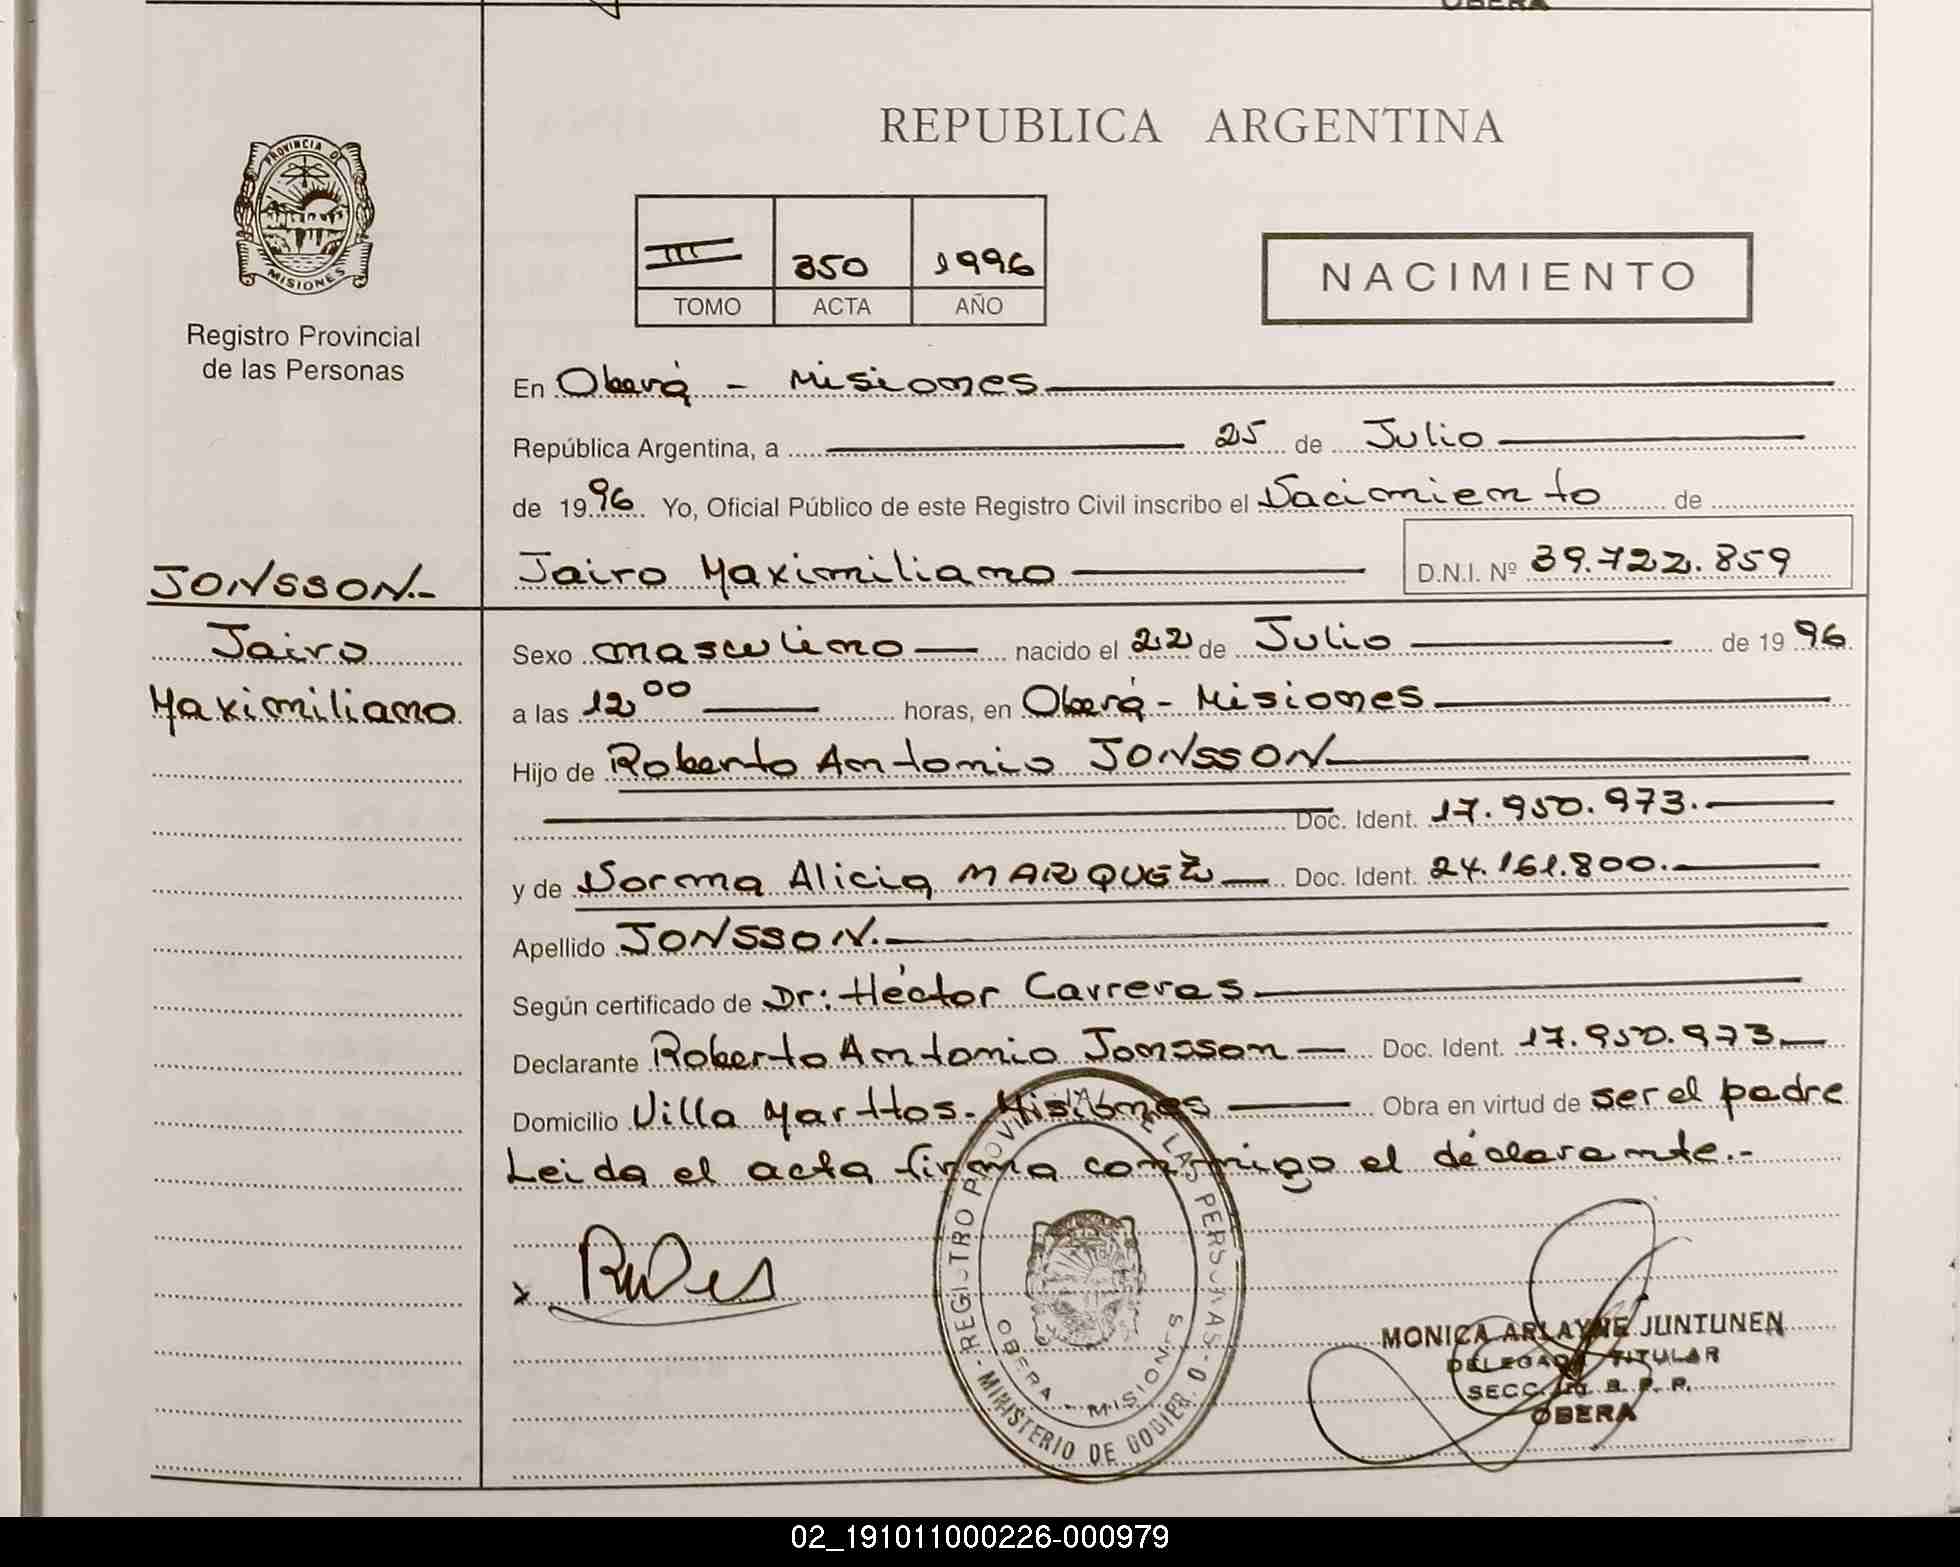 OBERA
PROVINCIA DE
MISIONES
Registro Provincial
de las Personas
REPUBLICA ARGENTINA
III 350 1996
TOMO ACTA AÑO
NACIMIENTO
En Oberá - Misiones
República Argentina, a 25 de Julio
de 1996 Yo, Oficial Público de este Registro Civil inscribo el Nacimiento de
JONSSON.-
Jairo Maximiliano D.N.I. Nº 39.722.859
Jairo
Maximiliano
Sexo masculino nacido el 22 de Julio de 1996
a las 12 00 horas, en Oberá - Misiones
Hijo de Roberto Antonio JONSSON
Doc. Ident. 17.950.973.
y de Norma Alicia MARQUEZ Doc. Ident. 24.161.800.
Apellido JONSSON.
Según certificado de Dr: Héctor Carreras
Declarante Roberto Antonio Jonsson Doc. Ident. 17.950.973
Domicilio Villa Marttos. Misiones Obra en virtud de ser el padre
Leida el acta firma conmigo el declarante.-
x
REGISTRO PROVINCIAL DE LAS PERSONAS
OBERA - MISIONES
MINISTERIO DE GOBIER. O
MONICA ARLAYNE JUNTUNEN
DELEGADA TITULAR
SECC. R. P. P.
OBERA
02_191011000226-000979